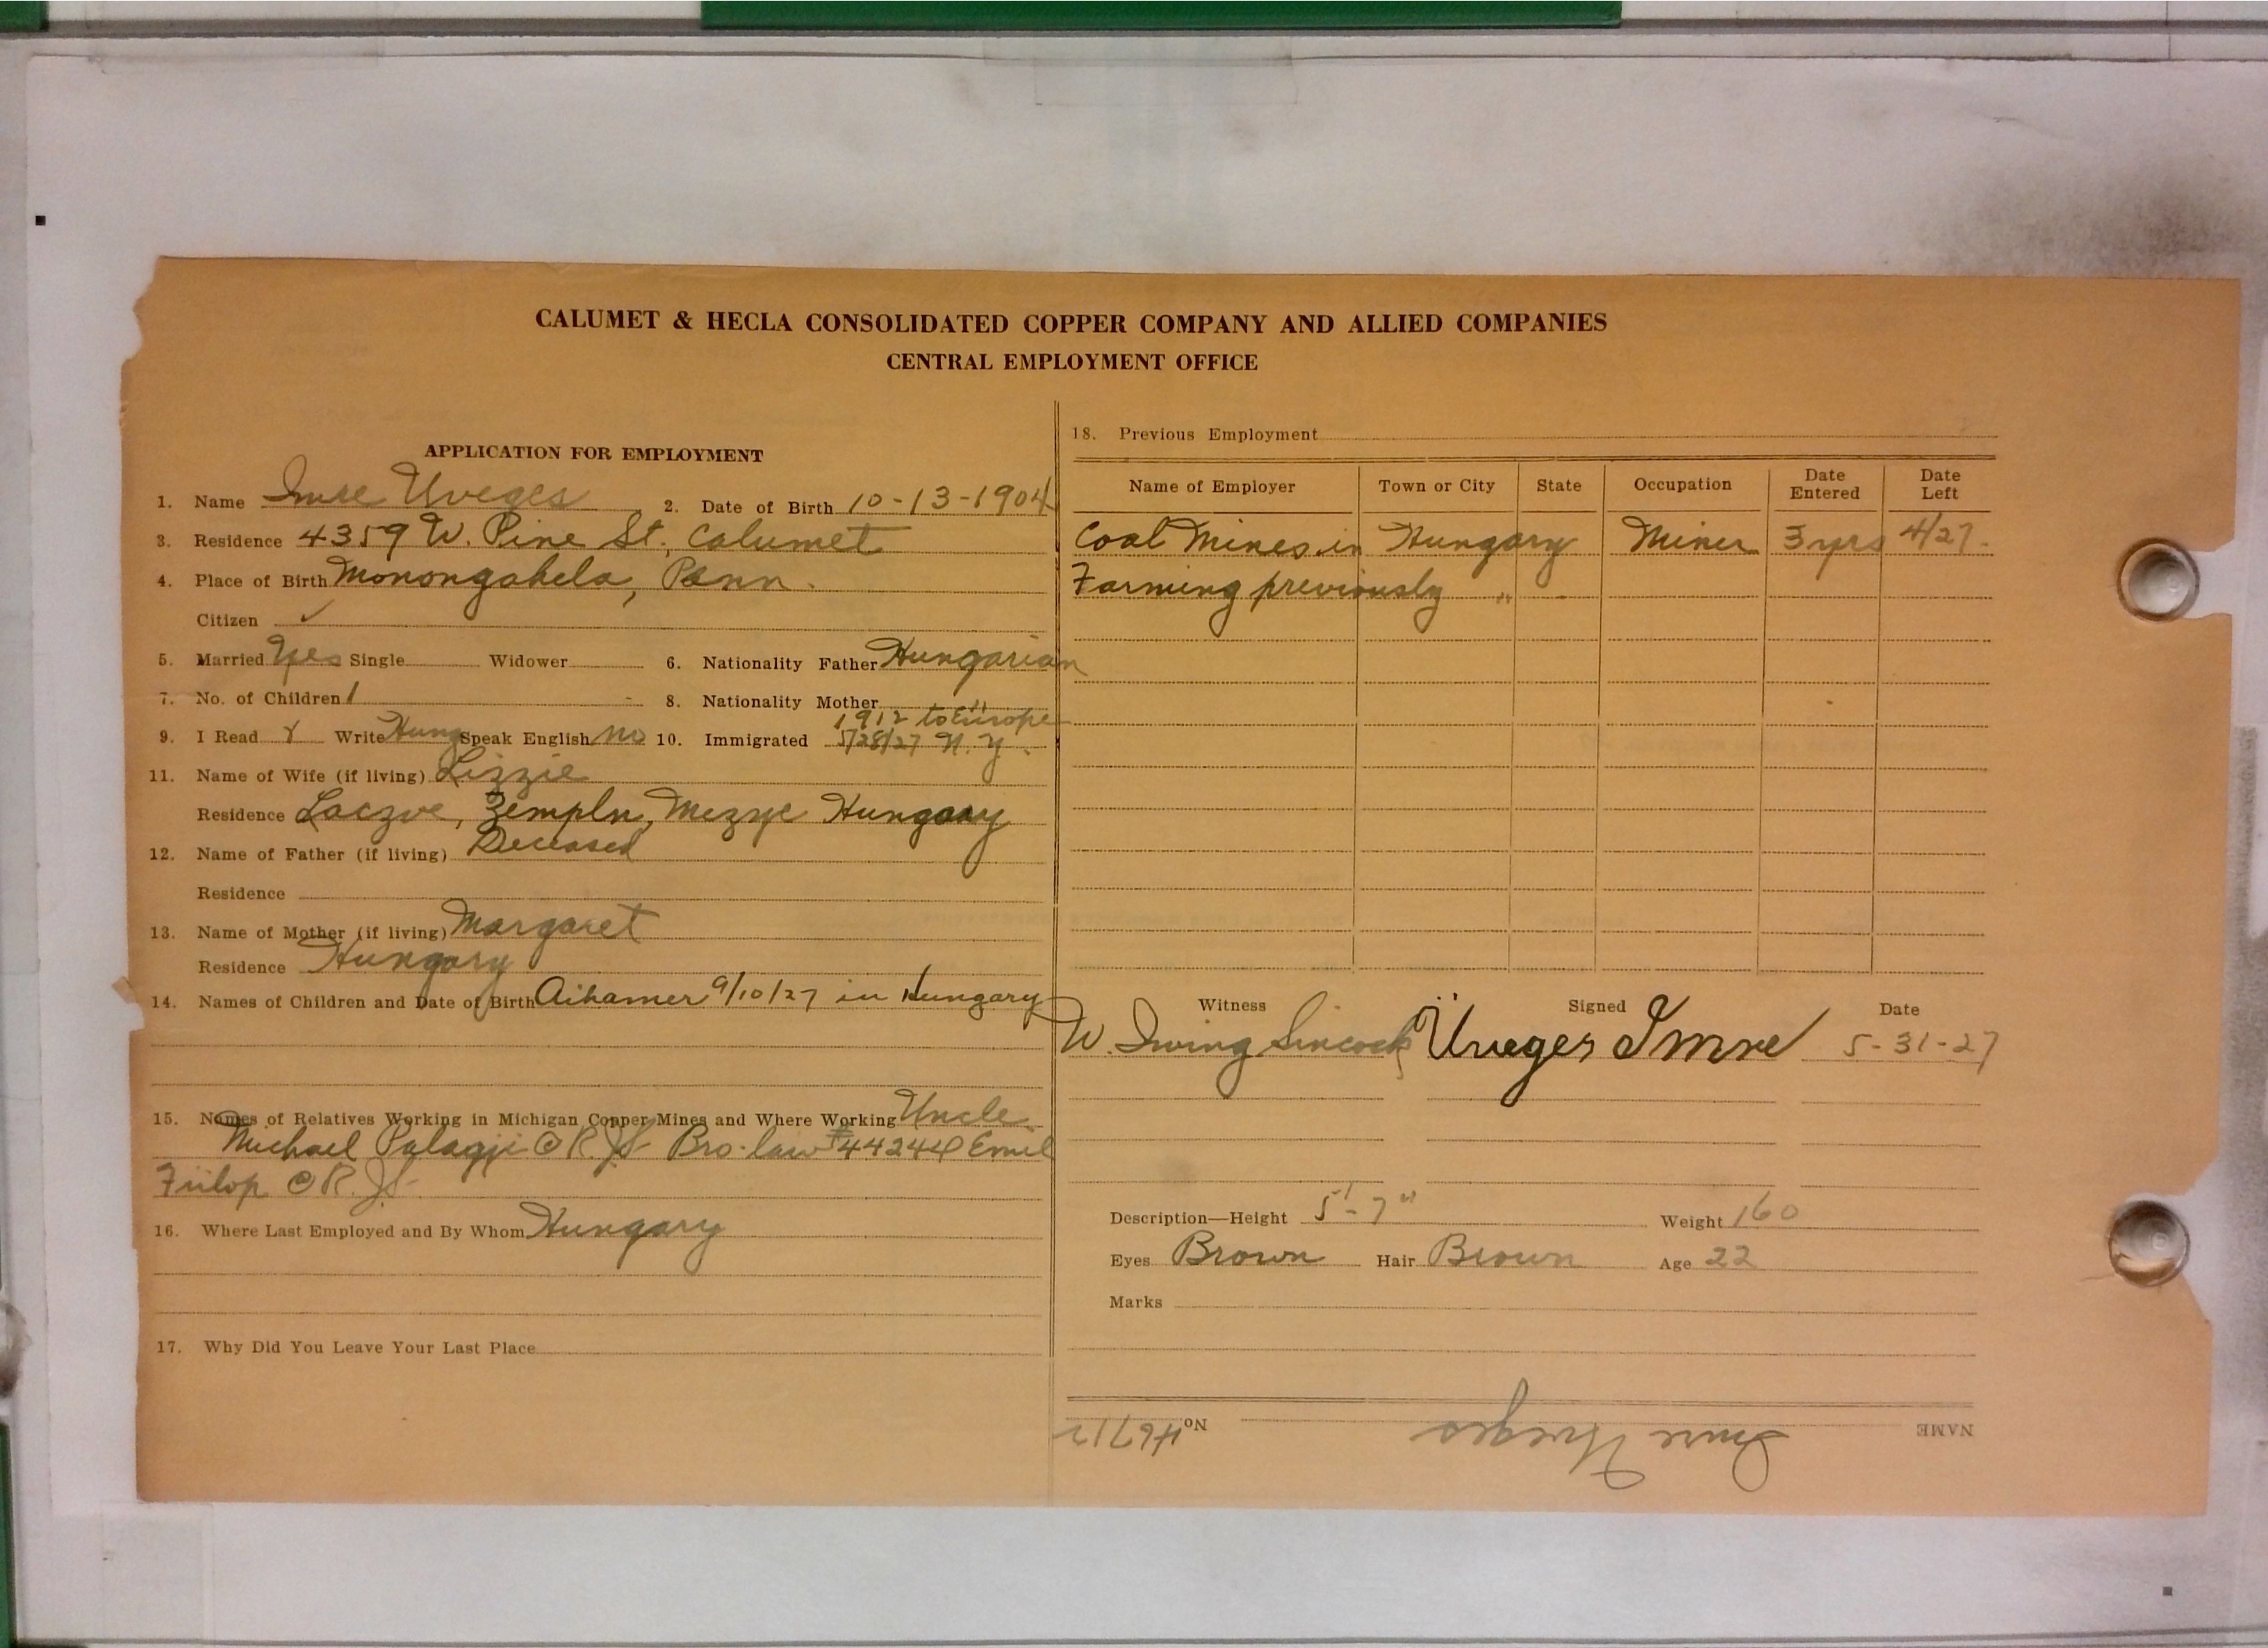 CALUMET & HECLA CONSOLIDATED COPPER COMPANY AND ALLIED COMPANIES
CENTRAL EMPLOYMENT OFFICE
APPLICATION FOR EMPLOYMENT
1. Name Imre Uveges 2. Date of Birth 10-13-1904
3. Residence 4359 W. Pine St., Calumet
4. Place of Birth Monongahela, Penn.
Citizen ✓
5. Married Yes Single Widower 6. Nationality Father Hungarian
7. No. of Children 1 8. Nationality Mother "
1912 to Europe
9. I Read Write Hung Speak English no 10. Immigrated 5/28/27 N.Y.
11. Name of Wife (if living) Lizzie
Residence Laczve, Zempln, Mezye Hungary
12. Name of Father (if living) Deceased
Residence
13. Name of Mother (if living) Margaret
Residence Hungary
14. Names of Children and Date of Birth Aihamer 9/10/27 in Hungary
15. Names of Relatives Working in Michigan Copper Mines and Where Working Uncle
Michael Palagyi C R. Jt Bro-law #44244 Emil
Fülop C R. Jt.
16. Where Last Employed and By Whom Hungary
17. Why Did You Leave Your Last Place
18. Previous Employment
Name of Employer Town or City State Occupation Date Entered Date Left
Coal Mines in Hungary Miner 3 yrs 4/27.
Farming previously "
Witness Signed Date
W. Irving Sincock Üveges Imre 5-31-27
Description—Height 5'-7" Weight 160
Eyes Brown Hair Brown Age 22
Marks
NAME Imre Uveges No. 46712